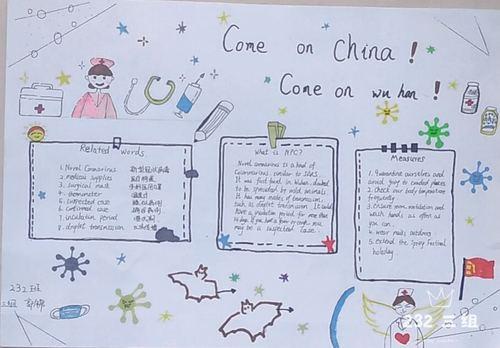 Come on China!
Come on wu han!
Related words
1. Novel Coronavirus 新型冠状病毒
2. medical supplies 医疗物资
3. surgical mask 外科医用口罩
4. thermometer 温度计
5. suspected case 疑似病例
6. confirmed case 确诊病例
7. incubation period 潜伏期
8. droplet transmission 飞沫传播
What is
Novel coronavirus is a kind of
Coronavirus similar to SARS.
It was first found in Wuhan,
to be spread by wild animals.
It has many modes of transmission,
such as droplet transmission. It could
have a incubation period for more than
may be a suspected case.
Measures
1. quarantine ourselves and
avoid going to crowded places
2. check our body temperature
frequently
3. ensure room ventilation and
wash hands as often as
you can.
4. wear masks outdoors
5. extend the Spring Festival
holiday
232班
三组
232 三组